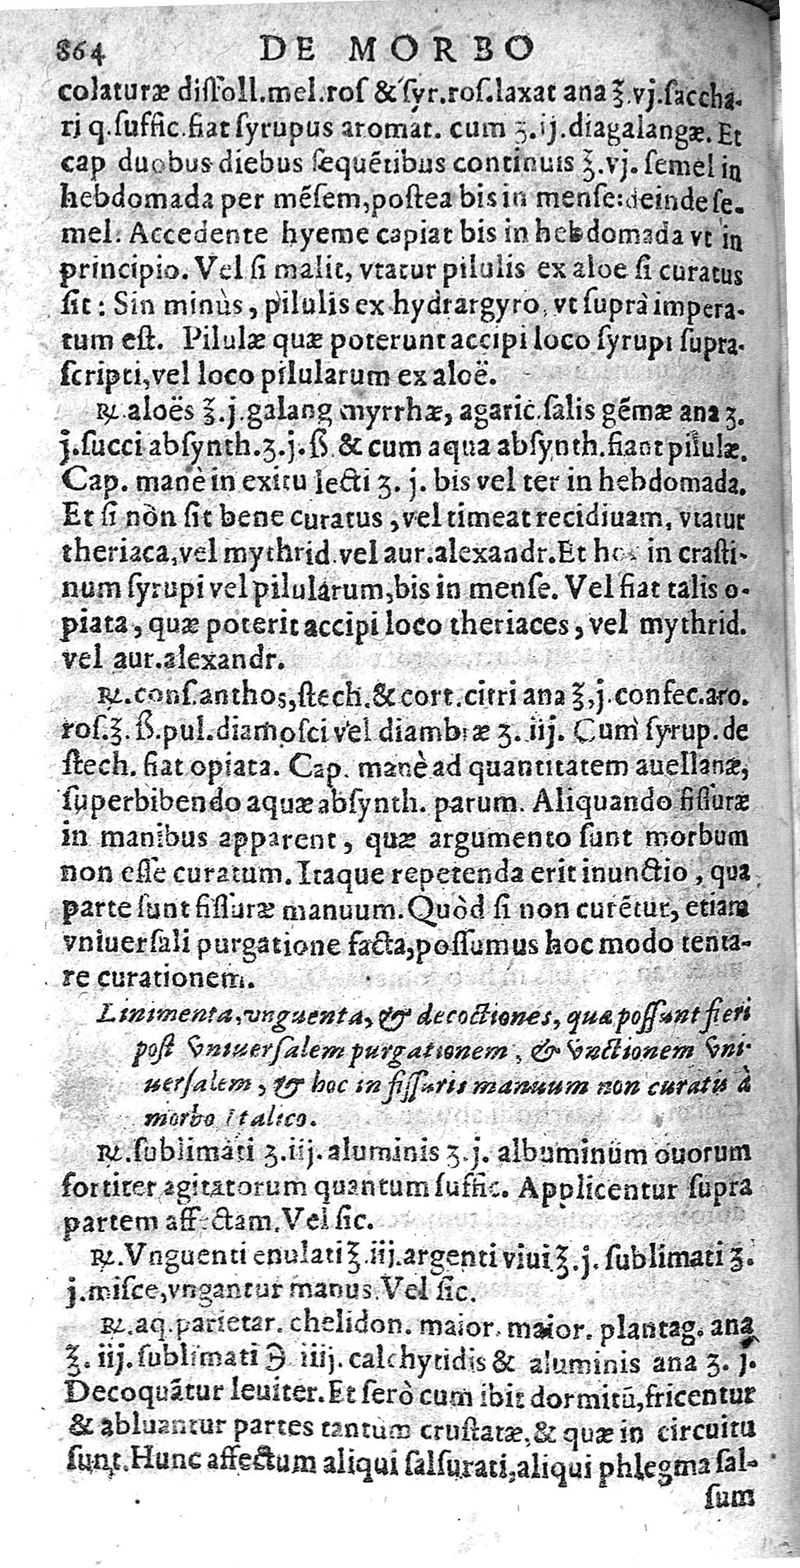 864 DE MORBO
colaturæ diſſoll.mel.roſ & ſyr.roſ.laxat ana ℥.vj.ſaccha-
ri q.ſuffic.fiat ſyrupus aromat. cum ʒ.ij.diagalangæ. Et
cap duobus diebus ſequẽtibus continuis ℥.vj. ſemel in
hebdomada per mẽſem,poſtea bis in menſe:deinde ſe-
mel. Accedente hyeme capiat bis in hebdomada vt in
principio. Vel ſi malit, vtatur pilulis ex aloe ſi curatus
ſit: Sin minùs, pilulis ex hydrargyro, vt ſuprà impera-
tum eſt. Pilulæ quæ poterunt accipi loco ſyrupi ſupra-
ſcripti,vel loco pilularum ex aloë.
℞.aloës ℥.j.galang myrrhæ, agaric.ſalis gẽmæ ana ʒ.
j.ſucci abſynth.ʒ.j.ß & cum aqua abſynth.fiant pilulæ.
Cap. manè in exitu lecti ʒ. j. bis vel ter in hebdomada.
Et ſi nòn ſit bene curatus, vel timeat recidiuam, vtatur
theriaca,vel mythrid.vel aur.alexandr.Et hoc in craſti-
num ſyrupi vel pilularum,bis in menſe. Vel fiat talis o-
piata, quæ poterit accipi loco theriaces, vel mythrid.
vel aur.alexandr.
℞.conſ.anthos,ſtech.& cort.citri ana ℥,j.confec.aro.
roſ.℥. ß.pul.diamoſci vel diambræ ʒ. iij. Cum ſyrup.de
ſtech. fiat opiata. Cap. manè ad quantitatem auellanæ,
ſuperbibendo aquæ abſynth. parum. Aliquando fiſſuræ
in manibus apparent, quæ argumento ſunt morbum
non eſſe curatum. Itaque repetenda erit inunctio, qua
parte ſunt fiſſuræ manuum. Quòd ſi non curẽtur, etiam
vniuerſali purgatione facta,poſſumus hoc modo tenta-
re curationem.
Linimenta,vnguenta, & decoctiones, quæ poſſunt fieri
poſt vniuerſalem purgationem, & vnctionem vni-
uerſalem, & hoc in fiſſuris manuum non curatis à
morbo Italico.
℞.ſublimati ʒ.iij.aluminis ʒ.j. albuminum ouorum
fortiter agitatorum quantum ſuffic. Applicentur ſupra
partem affectam.Vel ſic.
℞.Vnguenti enulati ℥.iij.argenti viui ℥.j. ſublimati ʒ.
j.miſce,vngantur manus.Vel ſic.
℞.aq.parietar. chelidon. maior. maior. plantag. ana
℥. iij.ſublimati ℈ iiij. calchytidis & aluminis ana ʒ. j.
Decoquãtur leuiter.Et ſerò cum ibit dormitũ,fricentur
& abluantur partes tantùm cruſtatæ,& quæ in circuitu
ſunt.Hunc affectum aliqui ſalſurati,aliqui phlegma ſal-
ſum